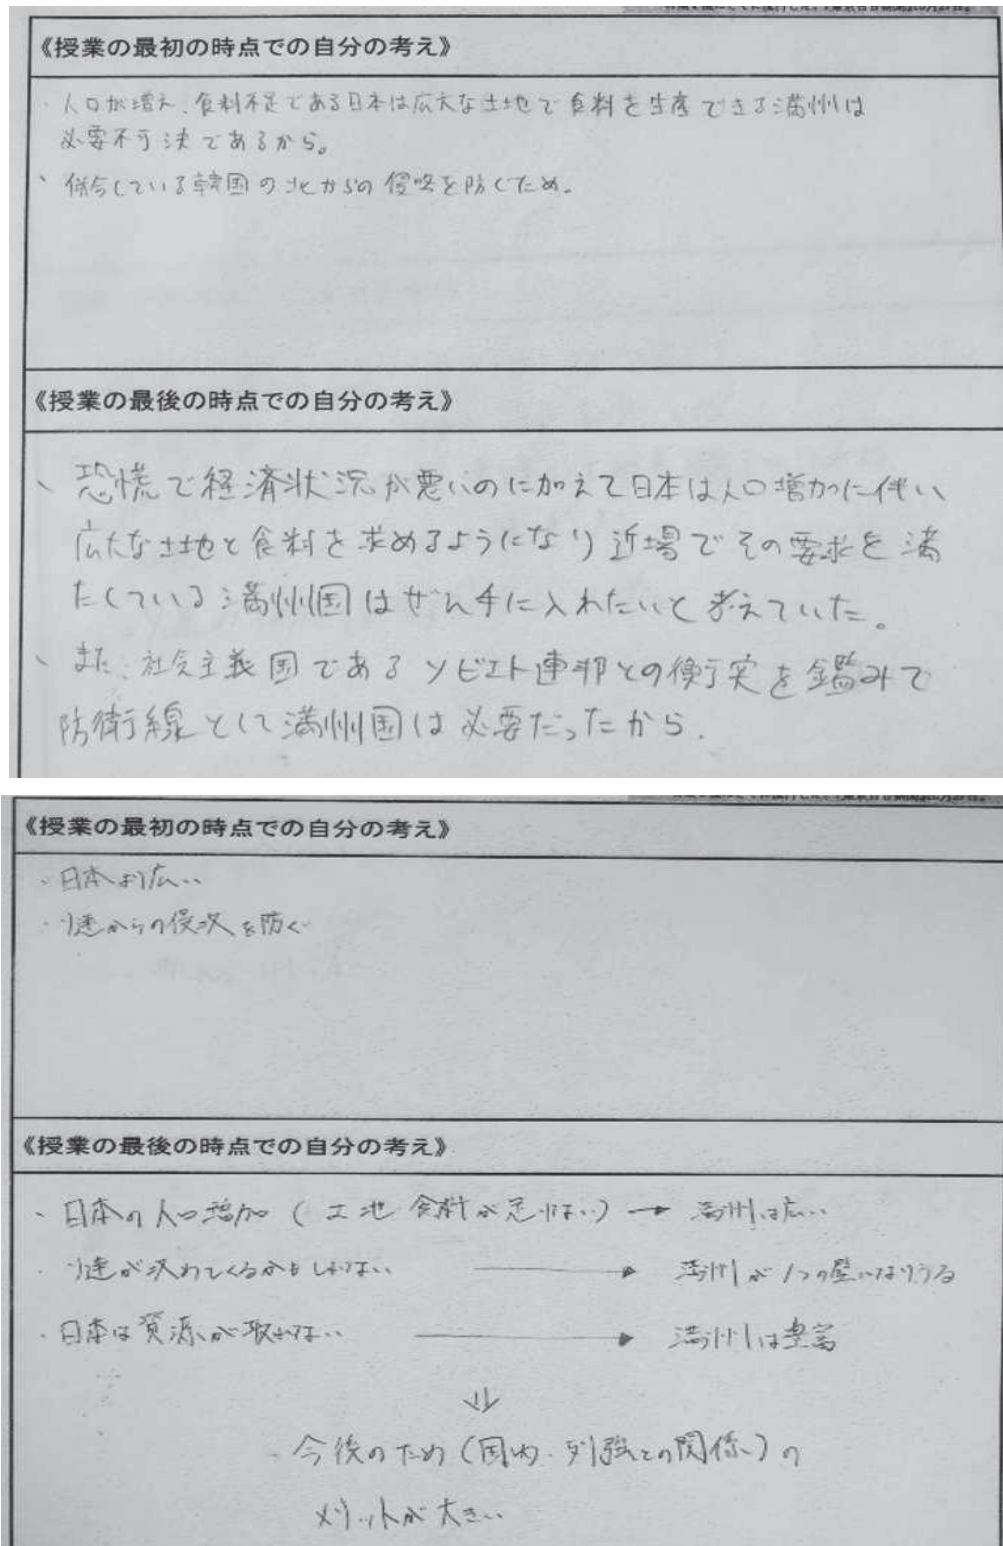 《授業の最初の時点での自分の考え》
・人口が増え、食料不足である日本は広大な土地で食料を生産できる満州は
必要不可決であるから。
、併合している韓国の北からの侵略を防ぐため。
《授業の最後の時点での自分の考え》
、恐慌で経済状況が悪いのに加えて日本は人口増加に伴い、
広大な土地と食料を求めるようになり近場でその要求を満
たしている満州国はぜひ手に入れたいと考えていた。
、また、社会主義国であるソビエト連邦との衝突を鑑みて
防衛線として満州国は必要だったから.
《授業の最初の時点での自分の考え》
・日本より広い
・ソ連からの侵攻を防ぐ
《授業の最後の時点での自分の考え》
・日本の人口増加(土地 食料が足りない) → 満州は広い
・ソ連が攻めてくるかもしれない → 満州が1つの壁になりうる
・日本は資源が取れない → 満州は豊富
⇓
今後のため(国内・列強との関係)の
メリットが大きい